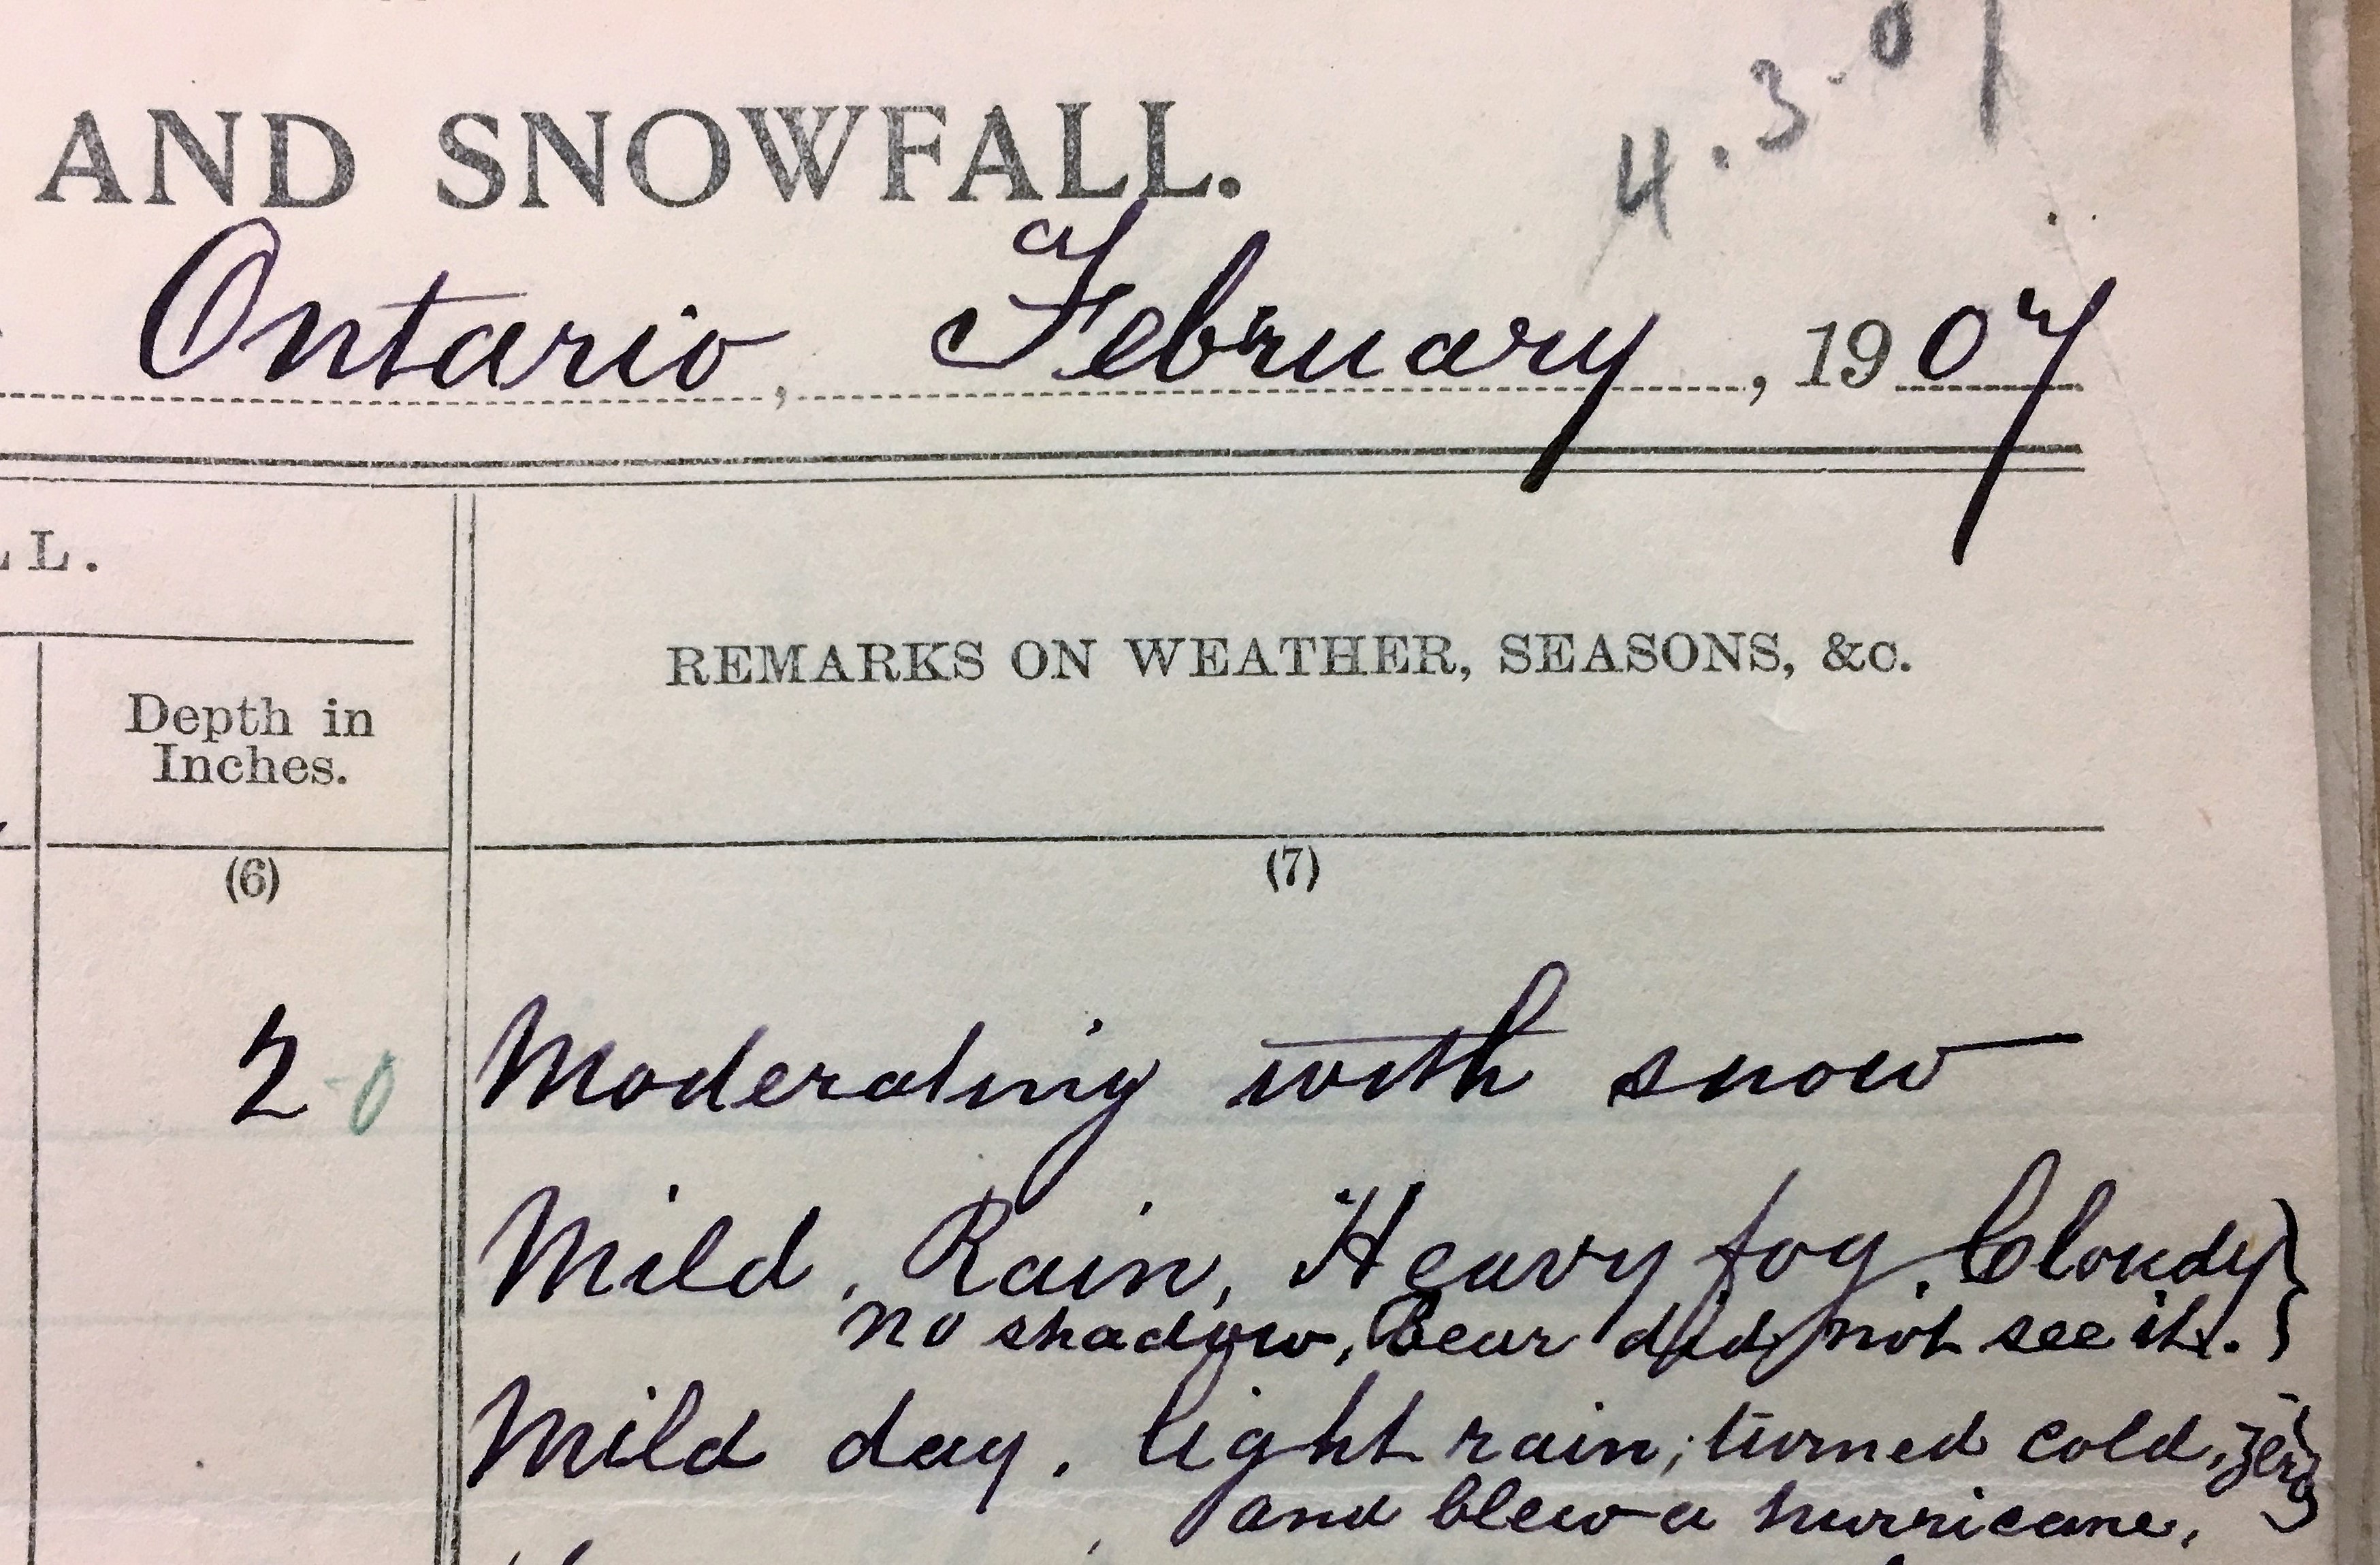 4.3-07
AND SNOWFALL.
Ontario, February, 1907
LL.
REMARKS ON WEATHER, SEASONS, &c.
Depth in
Inches.
(6)
(7)
2-0 Moderating with snow
Mild. Rain, Heavy fog. Cloudy
no shadow, Bear did not see it.
Mild day. light rain; turned cold, zero
and blew a hurricane,